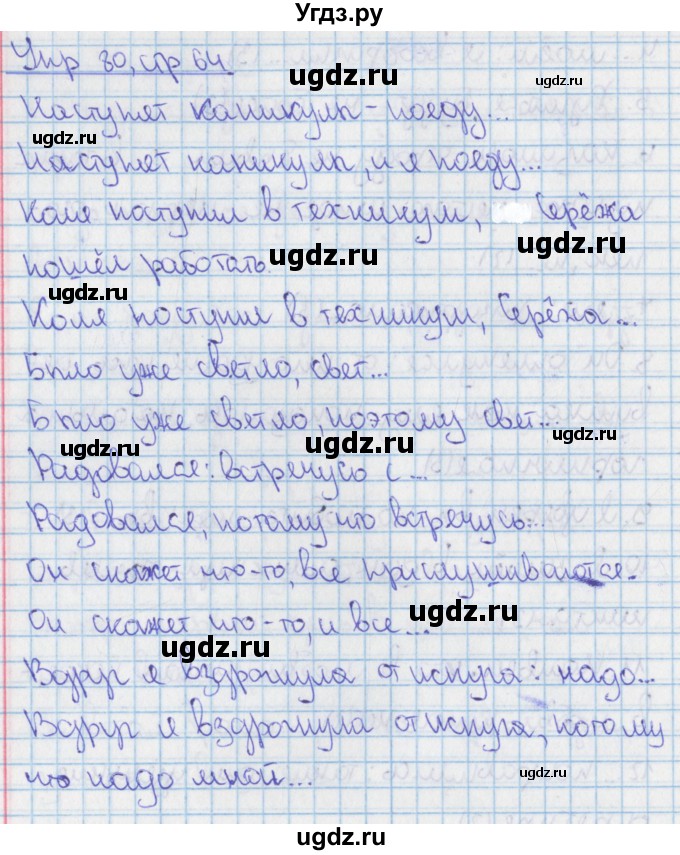 Угдз.ру
Упр 80, стр 64
ugdz.ru
Наступят каникулы - поеду...
ugdz.ru
ugdz.ru
Наступят каникулы, и я поеду...
ugdz.ru
Коля поступил в техникум, Серёжа
ugdz.ru
пошёл работать.
ugdz.ru
ugdz.ru
Коля поступил в техникум, Серёжа...
Было уже светло, свет...
ugdz.ru
Было уже светло, поэтому свет...
ugdz.ru
ugdz.ru
ugdz.ru
Радовался: встречусь с...
Радовался, потому что встречусь...
ugdz.ru
ugdz.ru
Он скажет что-то, все прислушиваются.
ugdz.ru
Он скажет что-то, и все...
ugdz.ru
ugdz.ru
Вдруг я вздрогнула от испуга: надо...
Вдруг я вздрогнула от испуга, потому
что надо мной...
ugdz.ru
ugdz.ru
ugdz.ru